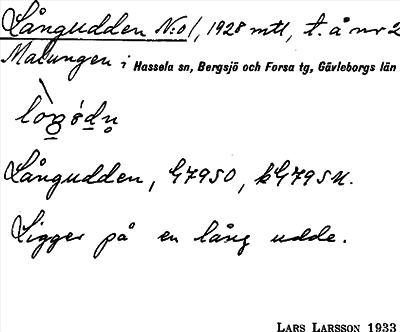 Långudden N:o 1, 1928 mtl, t. å nr 2
Malungen i Hassela sn, Bergsjö och Forsa tg, Gävleborgs län
Långudden, G79SO, kG79SN.
Ligger på en lång udde.
LARS LARSSON 1933